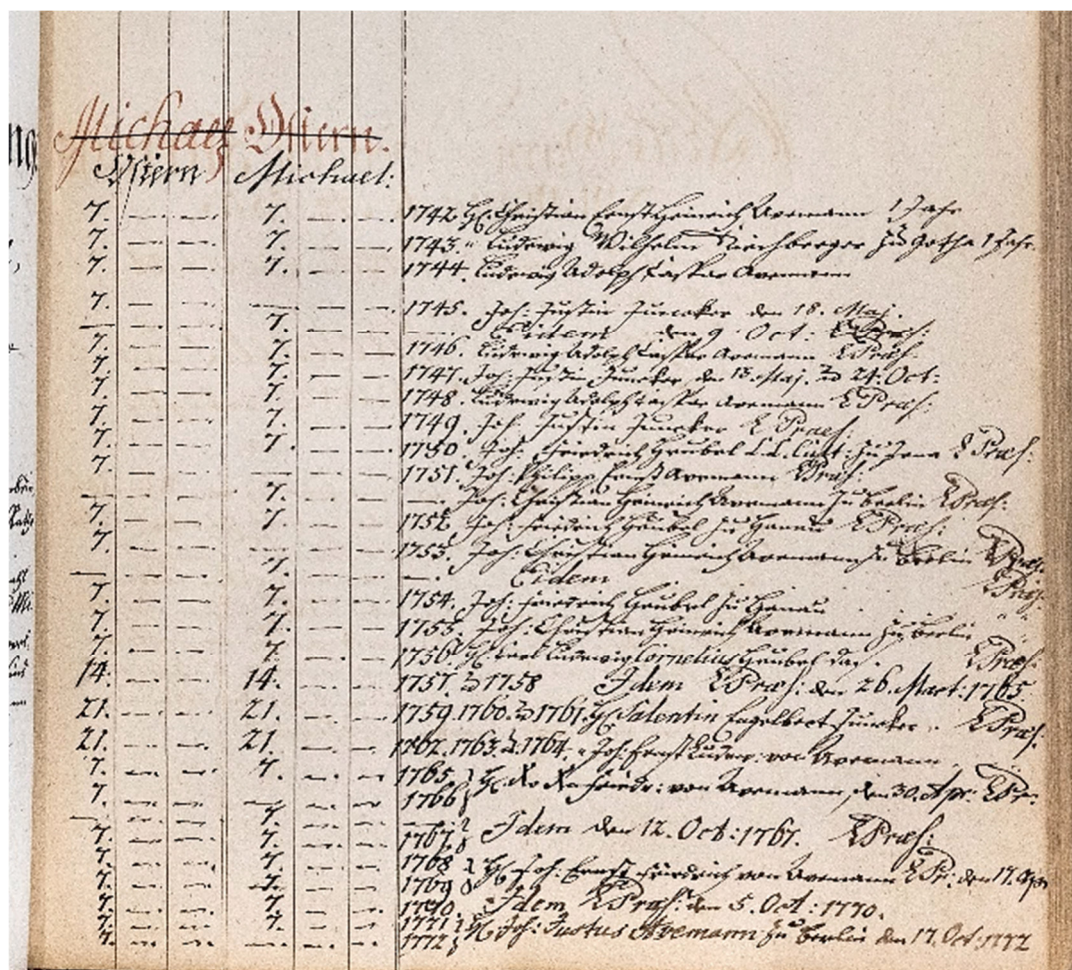 Michael Ostern.
Ostern Michael:
7. — — 7. — — 1742. H. Christian Ernst Heinrich Avemann 1 Jahr
7. — — 7. — — 1743. " Ludewig Wilhelm Kirchberger zu Gotha 1 Jahr.
7. — — 7. — — 1744. Ludewig Adolph Caspar Avemann
7. — — — — — 1745. Joh: Justin Juncker den 18. Maj.
— — — 7. — — Eidem den 9 Oct:
7. — — 7. — — 1746. Ludewig Adolph Caspar Avemann
7. — — 7. — — 1747. Joh: Justin Juncker, den 13. Maj. 24. Oct:
7. — — 7. — — 1748. Ludewig Adolph Caspar Avemann Præs:
7. — — 7. — — 1749. Joh. Justin Juncker Præs:
7. — — 7. — — 1750. Joh: Friedrich Heubel zu Jena Præs:
7. — — — — — 1751. Joh: Philipp Ernst Avemann Præs:
— — — 7. — — Joh. Christian Heinrich Avemann zu Berlin Præs:
7. — — 7 — — 1752. Joh: Friedrich Heubel zu Hanau Præs:
7. — — — — — 1753. Joh: Christian Heinrich Avemann zu Berlin Præs:
— — — 7. — — Eidem Præs:
7. — — 7. — — 1754. Joh: Friedrich Heubel zu Hanau
7. — — 7. — — 1755. Joh: Christian Heinrich Avemann zu Berlin
7. — — 7. — — 1756. H. Carl Ludewig Cornelius Heubel Præs:
14. — — 14. — — 1757. 1758 Idem Præs: den 26. Mart: 1765
21. — — 21. — — 1759. 1760. 1761. H. Valentin Engelbert Juncker. Præs:
21. — — 21. — — 1762. 1763. 1764. " Joh: Ernst Ludew: von Avemann.
7. — — 7. — — 1765 H. Friedr: von Avemann, den 30. Apr: Pr:
7. — — — — — 1766
— — — 7. — —
7. — — 7. — — 1767. Idem den 12. Oct: 1767. Præs:
7. — — 7. — — 1768 H. Joh: Ernst Friedrich von Avemann Pr: den 17. Apr
7. — — 7. — — 1769
7. — — 7. — — 1770 Idem Præs: den 5. Oct: 1770.
7. — — 7. — — 1771 H. Joh: Justus Avemann zu Berlin den 17. Oct: 1772
7. — — — — — 1772